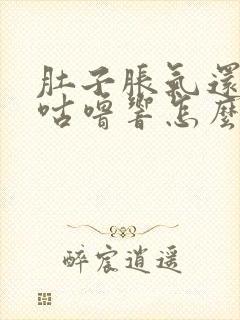 肚子脹氣還
咕嚕響怎麼
醉宸逍遥